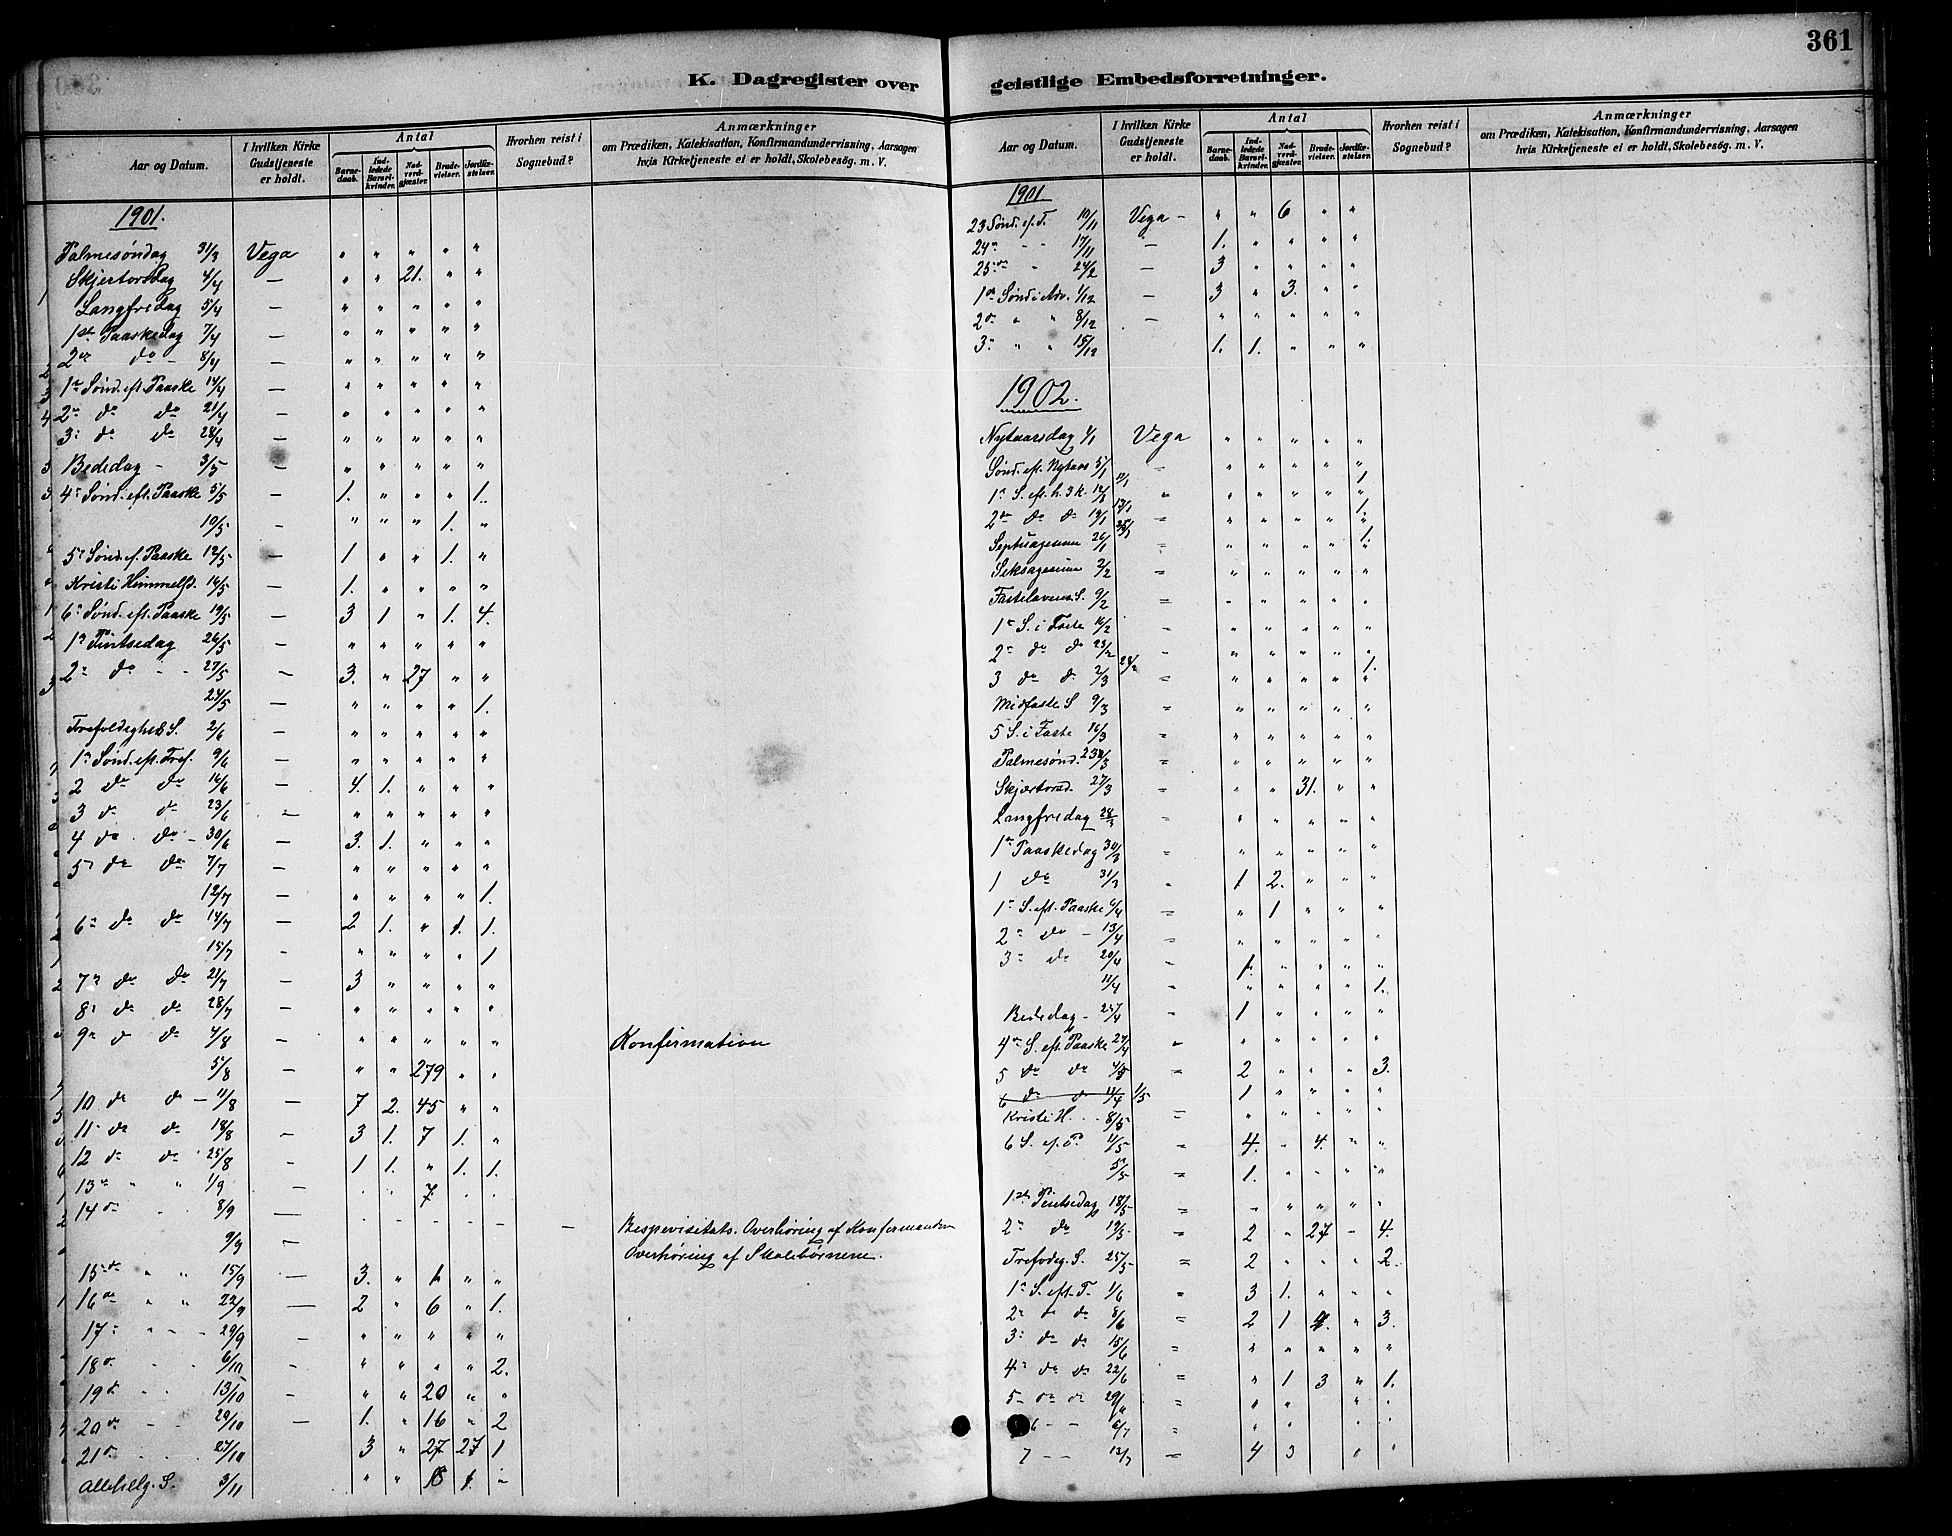 361
K. Dagregister over geistlige Embedsforretninger.
Aar og Datum. | I hvilken Kirke Gudstjeneste er holdt. | Antal | Barnedaab. | Indledede Barselkvinder. | Nadverdgjæster. | Brudevielser. | Jordfæstelser. | Hvorhen reist i Sognebud? | Anmærkninger om Prædiken, Katekisation, Konfirmandundervisning, Aarsagen hvis Kirketjeneste ei er holdt, Skolebesög. m. V.
1901.
Palmesøndag 31/3 Vega " " " " "
Skjertorsdag 4/4 — " " 21. " "
Langfredag 5/4 — " " " " "
1ste Paaskedag 7/4 — " " " " "
2den do - 8/4 — " " " " "
1ste Sønd. eft. Paaske 14/4 — " " " " "
2n do do 21/4 — " " " " "
3: do do 28/4 — " " " " "
Bededag - 3/5 — " " " " "
4: Sønd. eft. Paaske 5/5 — 1. " " " 1.
10/5 — " " " 1. "
5: Sønd. ef. Paaske 12/5 — 1 " " 1. "
Kristi Himmelfd. 16/5 — 1. " " " "
6: Sønd. eft. Paaske 19/5 — 3 1 " 1. 4.
1n Pintsedag 26/5 — " " " " "
2n do - - 27/5 — 3. " 27 " "
24/5 — " " " " 1.
Trefoldigheds S. 2/6 — " " " " "
1n Sønd. eft. Tref. 9/6 — " " " " "
2 do do 16/6 — 4. 1. " " "
3 do do 23/6 — " " " " "
4 do do - 30/6 — 3. 1. " " "
5n do do 7/7 — " " " " "
12/7 — " " " " 1.
6n do do 14/7 — 2 1. " 1. 1.
15/7 — " " " " 1
7n do do 21/7 — 3 " " " "
8: do do 28/7 — " " " " "
9n do do 4/8 — " " " " " Konfirmation
5/8 — " " 279 " "
10 do do — 11/8 — 7 2. 45 " "
11 do do 18/8 — 3 1. 7 1. "
12 do do 25/8 — 1 1. " 1. 1.
13de " " 1/9 — " " 7. " "
14de " " 8/9 — - - - - - — Bispevisitats. Overhøring af Konfirmanden
9/9 — Overhøring af Skolebørnene.
15de " " 15/9 — 3. " 1 " "
16de " " 22/9 — 2 " 6 " 1.
17: " - - 29/9 — " " " " "
18de - - 6/10 — " " " " 2.
19de - - 13/10 — " " 20 " "
20de - - 20/10 — 1. " 16 " 2
21de - - 27/10 3 " 27 27 1
Allehelg. S. 3/11 " " 18 1. "
1901
23 Sønd. ef. T. 10/11 Vega - " " 6 " "
24n " " 17/11 — 1. " " " "
25de " 24/2 — 3 " " " "
1ste Sønd i Adv. 1/12 — 3 " 3. " "
2de " " 8/12 — " " " " "
3: " " 15/12 1. 1. " " "
1902.
Nytaarsdag 1/1 Vega " " " " "
Sønd. eft. Nytaar 5/1 " " " " " "
1n S. eft. h. 3 K. 12/1 " " " " " 1
2de do do 19/1 " " " " " 1.
Septuagesima 26/1 " " " " " 1.
Seksagesima 2/2 " " " " " "
Fastelavens S. 9/2 " " " " " "
1n S. i Faste 16/2 " " " " " "
2n do do 23/2 " " " " " "
3 do d. 2/3 " " " " " 1.
Midfaste S 9/3 " " " " " "
5 S. i Faste 16/3 " " " " " "
Palmesønd. 23/3 " " " " " "
Skjærtorsd. 27/3 " " " 31. " "
Langfredag 28/3 " " " " " "
1n Paaskedag 30/3 " " " " " "
1 do 31/3 " 1 2. " " "
1n S. eft. Paaske 6/4 " " 1 " " "
2n do - 13/4 " " " " " "
3n do 20/4 " 1. " " " "
11/4 " " " " " 1.
Bededag - 25/4 " 1 " " " "
4n S. eft. Paaske 27/4 " " " " " "
5 do do 4/5 " 2 " " " 3.
6 do do 11/4 1/5 1 " " " "
Kristi H. . . 8/5 " " " " " "
6 S. ef. P. 11/5 " 4. " 4. " "
" 1. " " " "
1ste Pintsedag 18/5 " " " " " "
2n do 19/5 " 2 " 27 - 4.
Trefodeg. S. 25/5 " 2 " " " 2.
1n S. eft. T. 1/6 " 3 1. " " "
2n do do 8/6 " 2 1 " 3.
3n do do 15/6 " " " " " "
4n do do 22/6 " " 1 3 " 1.
5n do do 29/6 " " " " " "
6 - - 6/7 " " " " "
7 - - 13/7 " 4 3 " "